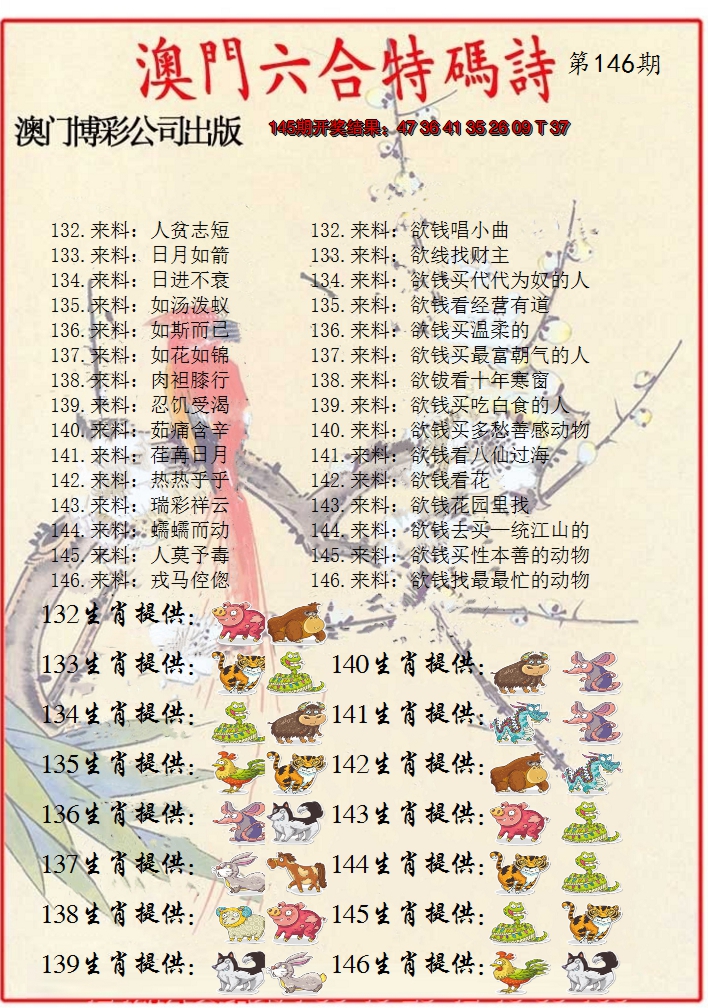 澳門六合特碼詩 第146期
澳门博彩公司出版 145期开奖结果：47 36 41 35 26 09 T 37
132.来料：人贫志短 132.来料：欲钱唱小曲
133.来料：日月如箭 133.来料：欲线找财主
134.来料：日进不衰 134.来料：欲钱买代代为奴的人
135.来料：如汤泼蚁 135.来料：欲钱看经营有道
136.来料：如斯而已 136.来料：欲钱买温柔的
137.来料：如花如锦 137.来料：欲钱买最富朝气的人
138.来料：肉袒膝行 138.来料：欲钹看十年寒窗
139.来料：忍饥受渴 139.来料：欲钱买吃白食的人
140.来料：茹痛含辛 140.来料：欲钱买多愁善感动物
141.来料：荏苒日月 141.来料：欲钱看八仙过海
142.来料：热热乎乎 142.来料：欲钱看花
143.来料：瑞彩祥云 143.来料：欲钱花园里找
144.来料：蠕蠕而动 144.来料：欲钱去买一统江山的
145.来料：人莫予毒 145.来料：欲钱买性本善的动物
146.来料：戎马倥偬 146.来料：欲钱找最最忙的动物
132生肖提供：
133生肖提供： 140生肖提供：
134生肖提供： 141生肖提供：
135生肖提供： 142生肖提供：
136生肖提供： 143生肖提供：
137生肖提供： 144生肖提供：
138生肖提供： 145生肖提供：
139生肖提供： 146生肖提供：